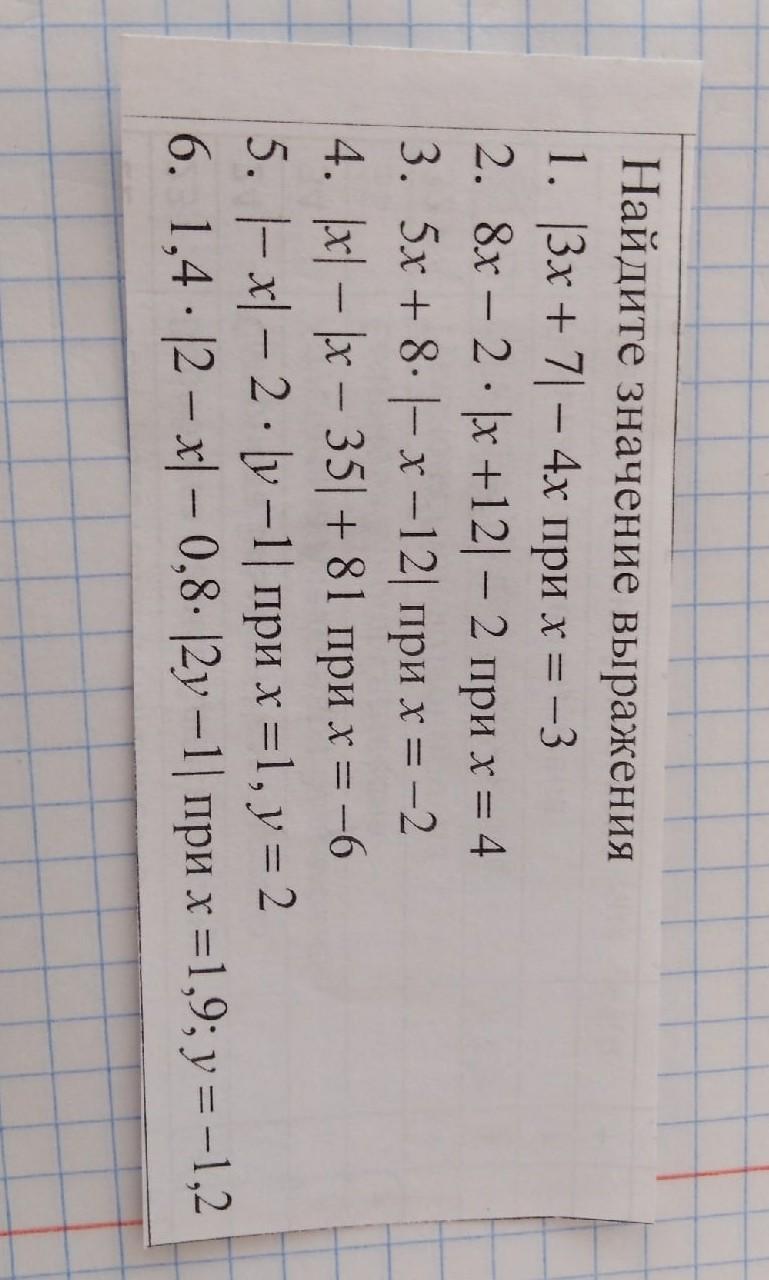 Найдите значение выражения
1. |3x + 7| − 4x при x = −3
2. 8x − 2 · |x +12| − 2 при x = 4
3. 5x + 8· |− x −12| при x = −2
4. |x| − |x − 35| + 81 при x = −6
5. |− x| − 2 · |y −1| при x =1, y = 2
6. 1,4 · |2 − x| − 0,8· |2y −1| при x =1,9; y = −1,2